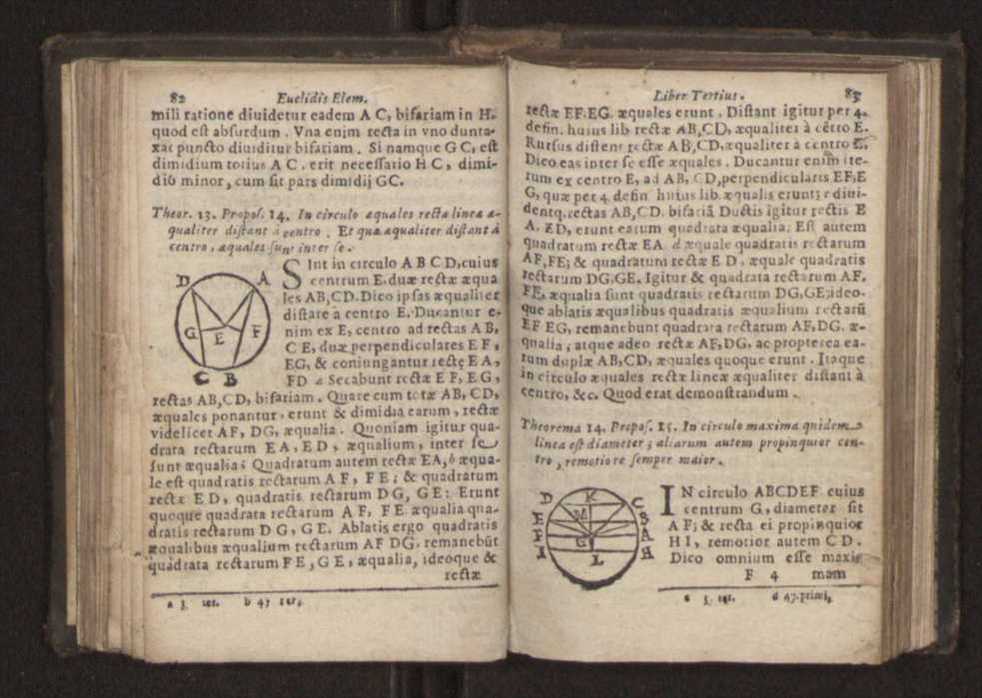 82 Euclidis Elem.
mili ratione diuidetur eadem A C, bifariam in H.
quod est absurdum. Vna enim recta in vno dunta-
xat puncto diuiditur bifariam. Si namque G C, est
dimidium totius A C. erit necessario H C, dimi-
diô minor, cum sit pars dimidij GC.
Theor. 13. Propos. 14. In circulo æquales rectæ lineæ æ-
qualiter distant à centro. Et quæ æqualiter distant à
centro, æquales sunt inter se.
SInt in circulo A B C D, cuius
centrum E. duæ rectæ æqua
les AB, CD. Dico ipsas æqualiter
distare a centro E. Ducantur e-
nim ex E, centro ad rectas A B,
C E, duæ perpendiculares E F,
EG, & coniungantur rectę E A,
FD a Secabunt rectæ E F, E G,
D A G E F C B
rectas AB, CD, bifariam. Quare cum totæ AB, CD,
æquales ponantur, erunt & dimidia earum, rectæ
videlicet AF, DG, æqualia. Quoniam igitur qua-
drata rectarum EA, ED, æqualium, inter se
sunt æqualia; Quadratum autem rectæ EA, b æqua-
le est quadratis rectarum A F, F E; & quadratum
rectæ E D, quadratis rectarum D G, G E: Erunt
quoque quadrata rectarum A F, F E æqualia qua-
dratis rectarum D G, G E. Ablatis ergo quadratis
æqualibus æqualium rectarum AF DG. remanebūt
quadrata rectarum F E, G E, æqualia, ideoque &
rectæ
a 3. ter. b 47
Liber Tertius. 83
rectæ EF. EG. æquales erunt. Distant igitur per 4.
defin. huius lib rectæ AB, CD, æqualiter à cētro E.
Rursus distent rectæ A B, CD, æqualiter à centro E,
Dico eas inter se esse æquales. Ducantur enim ite-
rum ex centro E, ad AB, CD, perpendicularis EF, E
G, quæ per 4 defin huius lib. æqualis erunt; & diui-
dentq. rectas AB, CD. bifariā Ductis igitur rectis E
A, ED, erunt earum quadrata æqualia: Est autem
quadratum rectæ EA d æquale quadratis rectarum
AF, FE; & quadratum rectæ E D, æquale quadratis
rectarum DG, GE. Igitur & quadrata rectarum AF,
FE, æqualia sunt quadratis rectarum DG, GE; ideo-
que ablatis æqualibus quadratis æqualium rectarū
EF EG, remanebunt quadrata rectarum AF, DG. æ-
qualia; atque adeo rectæ AF, DG, ac propterea ea-
rum duplæ AB, CD, æquales quoque erunt. Itaque
in circulo æquales rectæ lineæ æqualiter distant à
centro, &c. Quod erat demonstrandum.
Theorema 14. Propos. 15. In circulo maxima quidem
linea est diameter; aliarum autem propinquior cen-
tro, remotiore semper maior.
IN circulo ABCDEF cuius
centrum G, diameter sit
A F; & recta ei propinquior
H I, remotior autem C D.
Dico omnium esse maxi-
D K C E B F M A I G H L
F 4 mam
c 3. ter. d 47. primi,